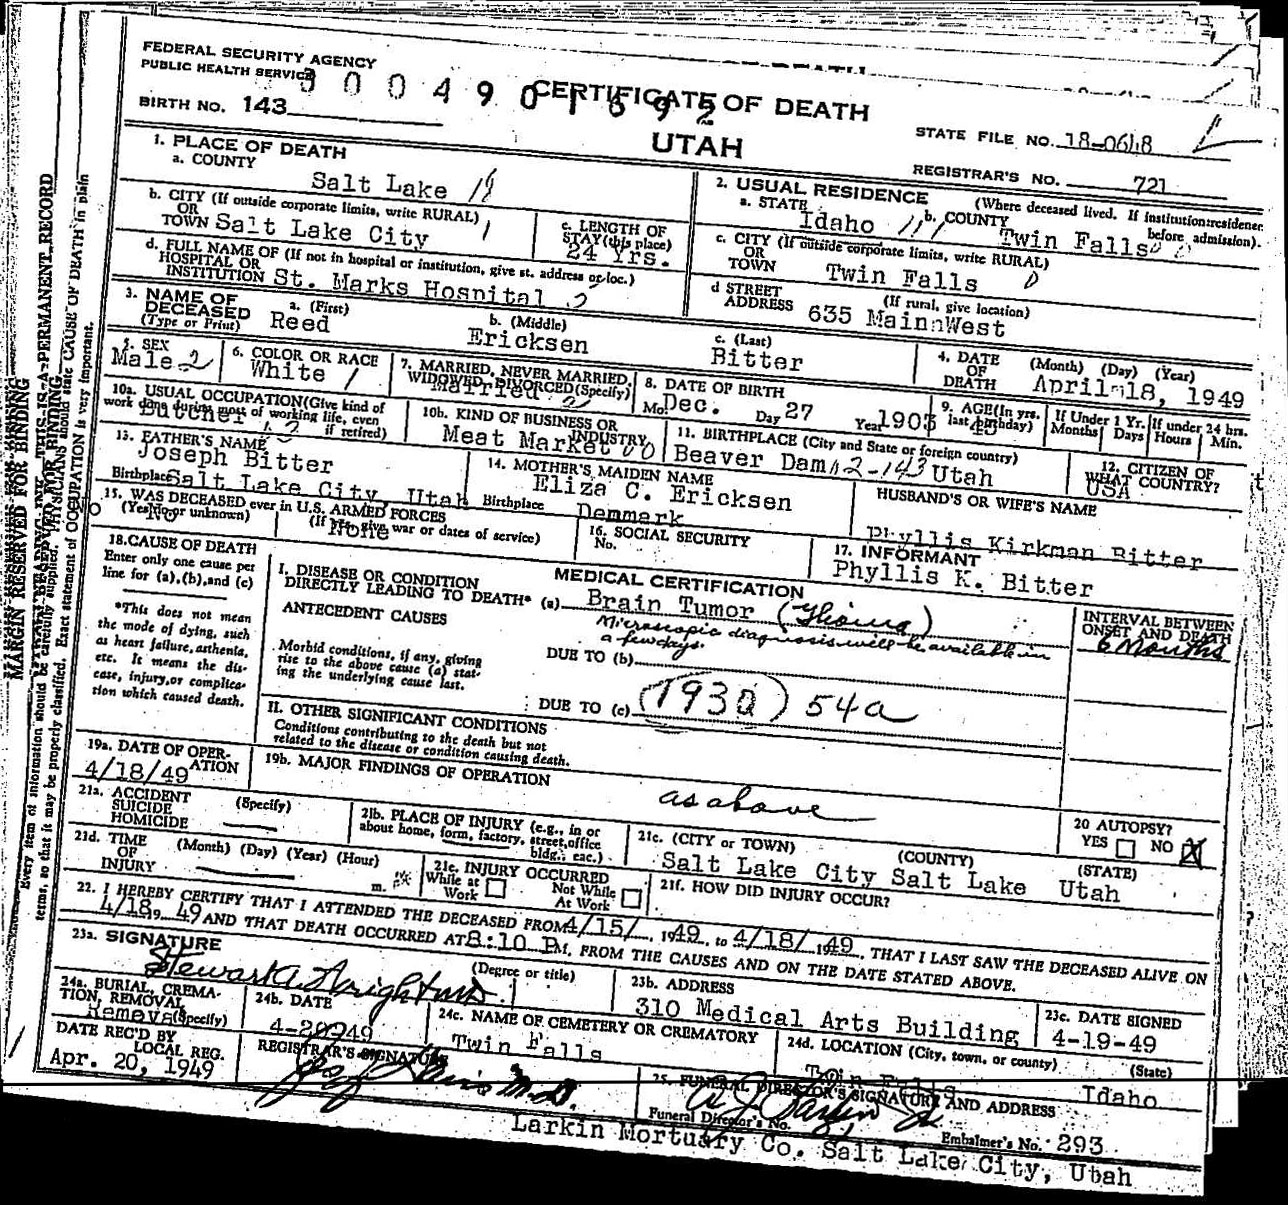 FEDERAL SECURITY AGENCY
PUBLIC HEALTH SERVICE
BIRTH NO. 143
CERTIFICATE OF DEATH
UTAH
STATE FILE NO. 18-0648
REGISTRAR'S NO. 721
1. PLACE OF DEATH
a. COUNTY
Salt Lake
b. CITY (If outside corporate limits, write RURAL)
OR
TOWN Salt Lake City
c. LENGTH OF
STAY (this place)
24 Yrs.
d. FULL NAME OF (If not in hospital or institution, give st. address or loc.)
HOSPITAL OR
INSTITUTION St. Marks Hospital 2
2. USUAL RESIDENCE (Where deceased lived. If institution:residence before admission).
a. STATE Idaho
b. COUNTY Twin Falls
c. CITY (If outside corporate limits, write RURAL)
OR
TOWN Twin Falls
d STREET (If rural, give location)
ADDRESS 635 Main West
3. NAME OF
DECEASED
(Type or Print)
a. (First)
Reed
b. (Middle)
Ericksen
c. (Last)
Bitter
4. DATE
OF
DEATH
(Month) (Day) (Year)
April 18, 1949
5. SEX
Male
6. COLOR OR RACE
White
7. MARRIED, NEVER MARRIED,
WIDOWED, DIVORCED (Specify)
Married
8. DATE OF BIRTH
Mo. Dec. Day 27 Year 1903
9. AGE (In yrs.
last birthday)
45
If Under 1 Yr.
Months Days
If under 24 hrs.
Hours Min.
10a. USUAL OCCUPATION (Give kind of
work done during most of working life, even
if retired)
Butcher
10b. KIND OF BUSINESS OR
INDUSTRY
Meat Market
11. BIRTHPLACE (City and State or foreign country)
Beaver Dam 2-143 Utah
12. CITIZEN OF
WHAT COUNTRY?
USA
13. FATHER'S NAME
Joseph Bitter
Birthplace Salt Lake City, Utah
14. MOTHER'S MAIDEN NAME
Eliza C. Ericksen
Birthplace Demmark
HUSBAND'S OR WIFE'S NAME
Phyllis Kirkman Bitter
15. WAS DECEASED ever in U.S. ARMED FORCES
(Yes, no, or unknown) (If yes, give war or dates of service)
No None
16. SOCIAL SECURITY
No.
17. INFORMANT
Phyllis K. Bitter
18. CAUSE OF DEATH
Enter only one cause per
line for (a), (b), and (c)
*This does not mean
the mode of dying, such
as heart failure, asthenia,
etc. It means the dis-
ease, injury, or complica-
tion which caused death.
MEDICAL CERTIFICATION
I. DISEASE OR CONDITION
DIRECTLY LEADING TO DEATH* (a) Brain Tumor
Microscopic diagnosis will be available in
a few days.
INTERVAL BETWEEN
ONSET AND DEATH
6 Months
ANTECEDENT CAUSES
Morbid conditions, if any, giving
rise to the above cause (a) stat-
ing the underlying cause last.
DUE TO (b)
DUE TO (c) 193Q 54a
II. OTHER SIGNIFICANT CONDITIONS
Conditions contributing to the death but not
related to the disease or condition causing death.
19a. DATE OF OPER-
ATION
4/18/49
19b. MAJOR FINDINGS OF OPERATION
as above
20 AUTOPSY?
YES NO X
21a. ACCIDENT
SUICIDE
HOMICIDE
(Specify)
21b. PLACE OF INJURY (e.g., in or
about home, form, factory, street, office
bldg., eac.)
21c. (CITY or TOWN) (COUNTY) (STATE)
Salt Lake City Salt Lake Utah
21d. TIME
OF
INJURY
(Month) (Day) (Year) (Hour)
m.
21e. INJURY OCCURRED
While at Work
Not While At Work
21f. HOW DID INJURY OCCUR?
22. I HEREBY CERTIFY THAT I ATTENDED THE DECEASED FROM 4/15/, 1949, to 4/18/, 1949, THAT I LAST SAW THE DECEASED ALIVE ON
4/18, 49 AND THAT DEATH OCCURRED AT 8:10 P M. FROM THE CAUSES AND ON THE DATE STATED ABOVE.
23a. SIGNATURE
(Degree or title)
Stewart A. Wright MD
23b. ADDRESS
310 Medical Arts Building
23c. DATE SIGNED
4-19-49
24a. BURIAL, CREMA-
TION, REMOVAL
(Specify)
Removal
24b. DATE
4-20-49
24c. NAME OF CEMETERY OR CREMATORY
Twin Falls
24d. LOCATION (City, town, or county) (State)
Twin Falls Idaho
DATE REC'D BY
LOCAL REG.
Apr. 20, 1949
REGISTRAR'S SIGNATURE
M.D.
25. FUNERAL DIRECTOR'S SIGNATURE AND ADDRESS
Funeral Director's No.
Embalmer's No. 293
Larkin Mortuary Co. Salt Lake City, Utah
MARGIN RESERVED FOR BINDING